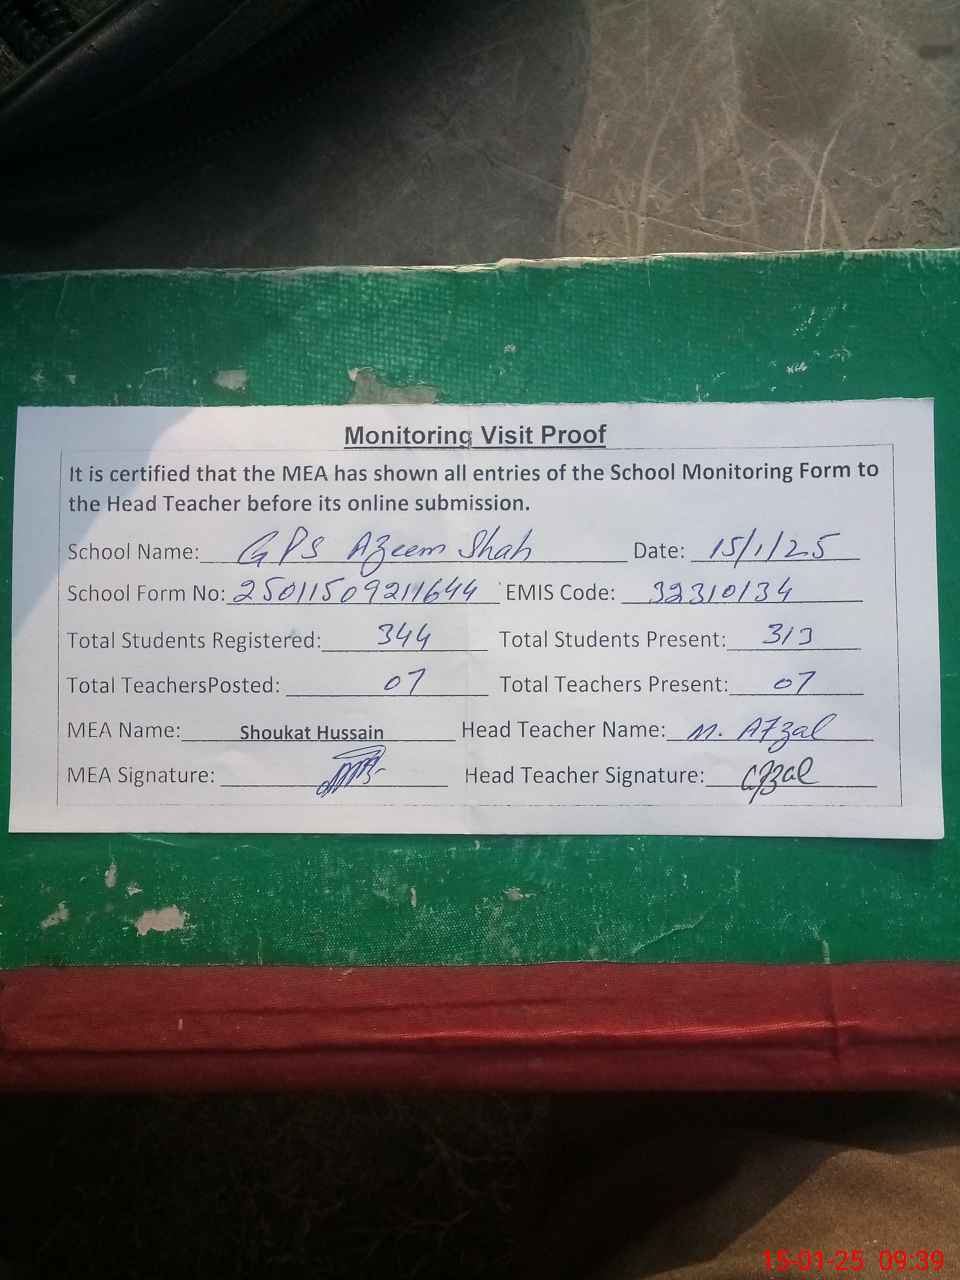 Monitoring Visit Proof
It is certified that the MEA has shown all entries of the School Monitoring Form to
the Head Teacher before its online submission.
School Name: GPS Azeem Shah Date: 15/1/25
School Form No: 25011509211644 EMIS Code: 32310134
Total Students Registered: 344 Total Students Present: 313
Total TeachersPosted: 07 Total Teachers Present: 07
MEA Name: Shoukat Hussain Head Teacher Name: M. Afzal
MEA Signature: Head Teacher Signature: afzal
15-01-25 09:39